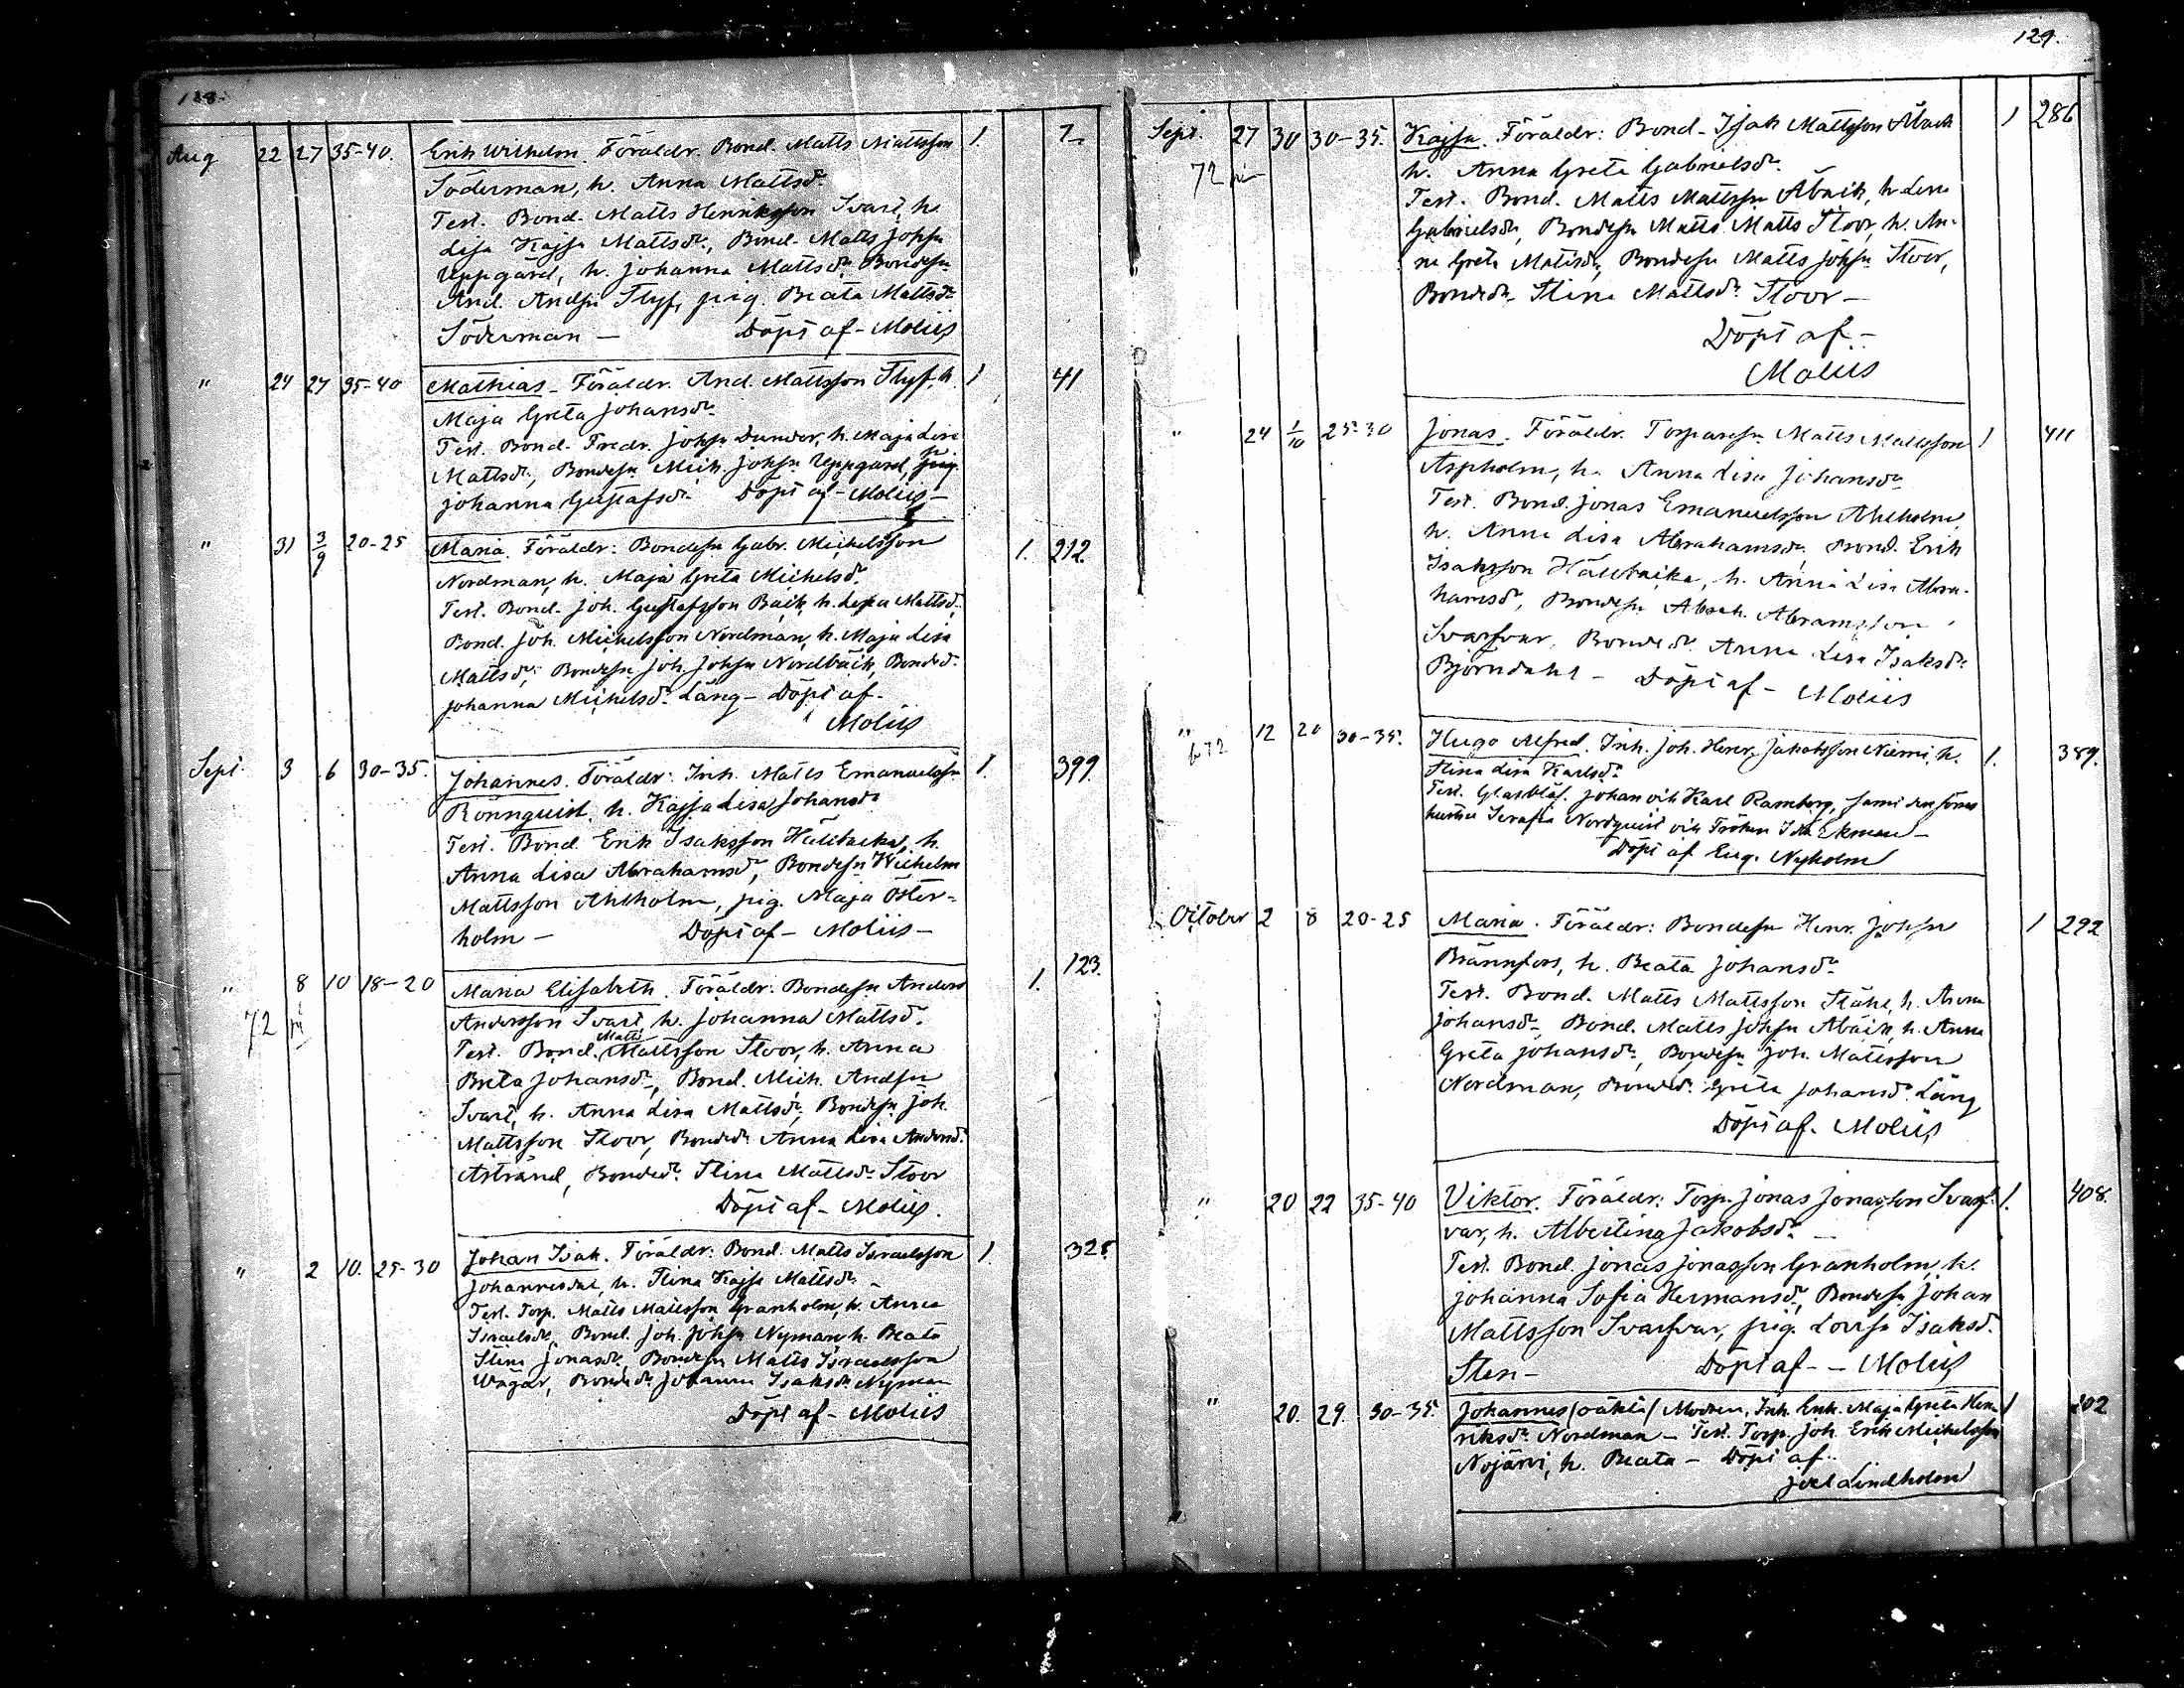 128.
Aug 22 27 35-40. Erik Wilhelm. Föräldr. Bond. Matts Mattsson 1. 7
Söderman, h. Anna Mattsdr
Test. Bond. Matts Henriksson Svart, h.
Lisa Kajsa Mattsdr, Bond. Matts Johsn
Uppgård, h. Johanna Mattsdr Bondesn
And. Andsn Styf, pig. Beata Mattsdr
Söderman — Döpt af - Moliis
" 24 27 35-40 Mathias - Föräldr. And. Mattsson Styf, h. 1 41
Maja Greta Johansdr
Test. Bond. Fredr. Johsn Dunder, h. Maja Lisa
Mattsdr, Bondesn Mich. Johsn Uppgård, h.
Johanna Gustafsdr Döpt af - Moliis -
" 31 3/9 20-25 Maria. Föräldr: Bondesn Gabr. Michelsson 1. 212.
Nordman, h. Maja Greta Michelsdr.
Test. Bond. Joh. Gustafsson Bäck, h. Lisa Mattsdr.
Bond. Joh. Michelsson Nordman, h. Maja Lisa
Mattsdr, Bondesn Joh. Johsn Nordbäck, Bonded.
Johanna Michelsdr Lång - Döpt af -
Moliis
Sept 3 6 30-35. Johannes. Föräldr: Inh. Matts Emanuelsson 1. 399.
Rönnquist, h. Kajsa Lisa Johansdr
Test. Bond. Erik Isaksson Hälibacka, h.
Anna Lisa Abrahamsdr, Bondesn Wilhelm
Mattsson Ahlholm, pig. Maja Öster-
holm — Döpt af - Moliis -
" 8 10 18-20 Maria Elisabeth. Föräldr. Bondesn Anders 1. 123.
72 Andersson Svart, h. Johanna Mattsdr.
Test. Bond. Matts Mattsson Stoor, h. Anna
Brita Johansdr, Bond. Mich. Andsn
Svart, h. Anna Lisa Mattsdr, Bondesn Joh.
Mattsson Stoor, Bondedr Anna Lisa Andersdr.
Åstrand, Bondedr. Stina Mattsdr Stoor
Döpt af - Moliis.
" 2 10. 25-30 Johan Isak. Föräldr: Bond. Matts Israelsson 1. 325
Johannesdal, h. Stina Kajsa Mattsdr -
Test. Torp. Matts Mattsson Granholm, h. Anna
Israelsdr, Bond. Joh. Johsn Nyman, h. Beata
Stina Jonasdr, Bondesn Matts Israelsson
Wägar, Bondedr Johanna Isaksdr Nyman
Döpt af - Moliis
129.
Sept. 27 30 30-35. Kajsa. Föräldr: Bond. Isak Mattsson Åback 1 286
72 h. Anna Greta Gabrielsdr
Test. Bond. Matts Mattsson Åback, h. Lena
Gabrielsdr, Bondesn Matts Matts Stoor, h. An-
na Greta Mattsdr, Bondesn Matts Johsn Stoor,
Bondedr Stina Mattsdr Stoor —
Döpt af -
Moliis
" 24 1/10 25-30 Jonas. Föräldr. Torparesn Matts Mattsson 1 411
Aspholm, h. Anna Lisa Johansdr
Test. Bond. Jonas Emanuelsson Ahlholm,
h. Anna Lisa Abrahamsdr, Bond. Erik
Isaksson Hälibacka, h. Anna Lisa Abra-
hamsdr, Bondesn Abrah. Abramsson
Svarfvar, Bondedr. Anna Lisa Isaksdr
Björndahl - Döpt af - Moliis
" 12 20 30-35. Hugo Alfred. Inh. Joh. Henr. Jakobsson Niemi, h. 1. 389.
672 Stina Lisa Karlsdr
Test. Glasblås. Johan och Karl Ramberg, samt den förres
hustru Serafia Nordquist och Fröken Ida Ekman -
Döpt af Eug. Nyholm
October 2 8 20-25 Maria. Föräldr: Bondesn Henr. Johsn 1 292
Brännfors, h. Beata Johansdr
Test. Bond. Matts Mattsson Ståhl, h. Anna
Johansdr, Bond. Matts Johsn Åbäck, h. Anna
Greta Johansdr, Bondesn Joh. Mattsson
Nordman, Bondedr. Greta Johansdr Lång
Döpt af. Moliis
" 20 22 35-40 Viktor. Föräldr: Torp. Jonas Jonasson Svarf- 1. 408.
var, h. Albertina Jakobsdr —
Test. Bond. Jonas Jonasson Granholm, h.
Johanna Sofia Hermansdr, Bondesn Johan
Mattsson Svarfvar, pig. Lovisa Isaksdr.
Sten - Döpt af - - Moliis
" 20. 29. 30-35. Johannes /oäkta/ Modren, Inh. Enk. Maja Greta Hen- 1 202
riksdr Nordman - Test. Torp. Joh. Erik Michelsson
Nojärvi, h. Beata - Döpt af
Joel Lindholm